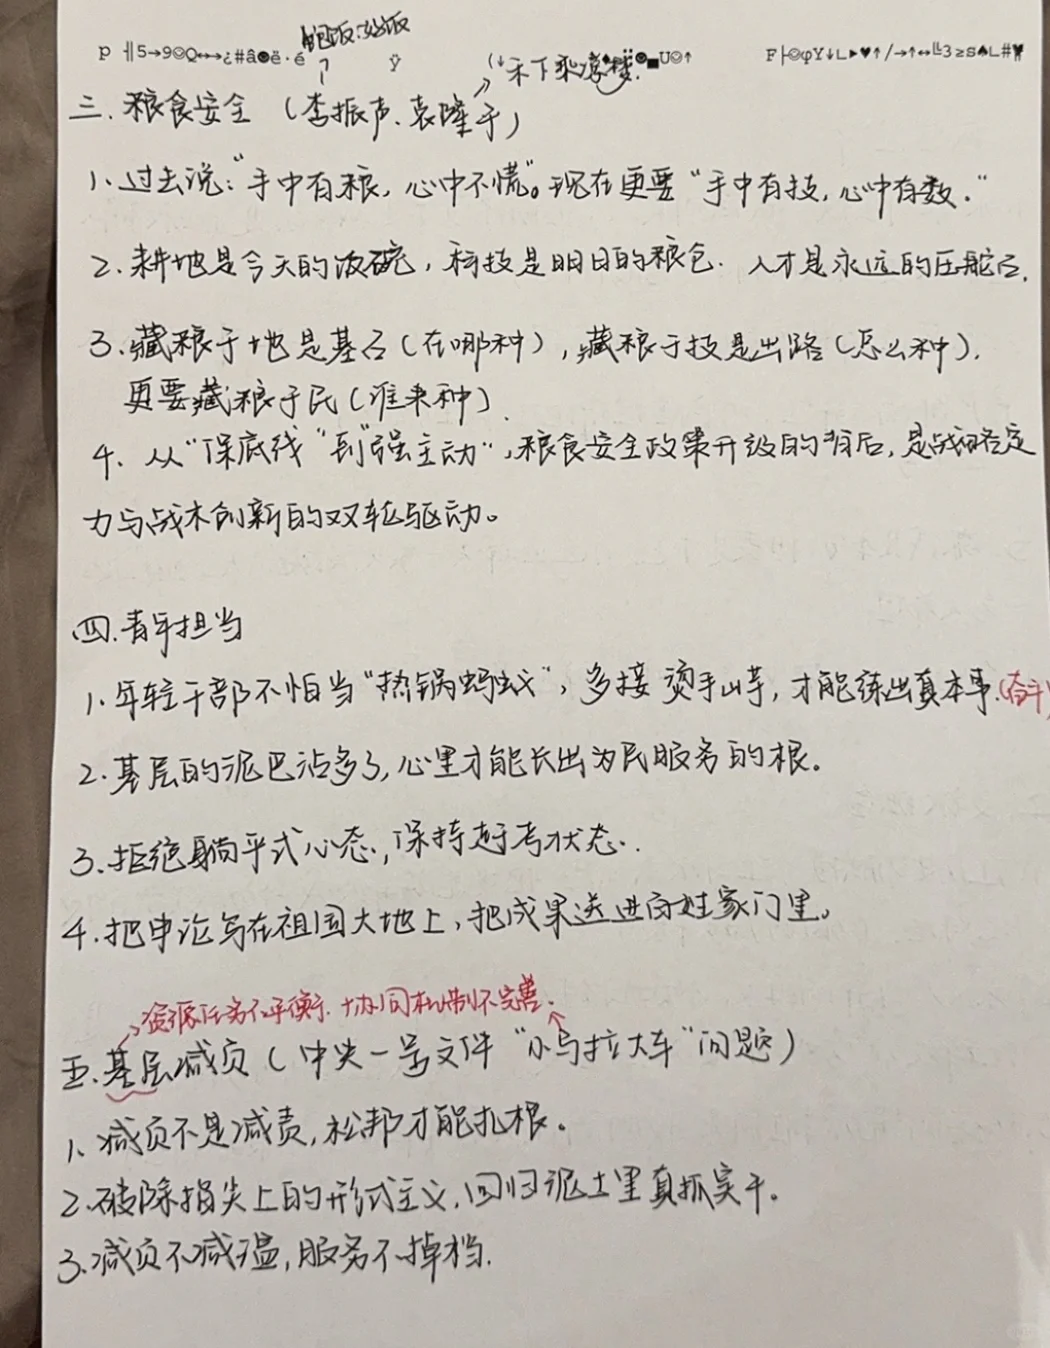 饱饭.好饭
p ╢5→9☺Q↔→¿#â☻ë·é
(↓禾下乘凉梦.
U☺↑
F├☺φY↓L►♥↑/→↑↔╙3≥s♠L#
三.粮食安全 (李振声.袁隆平)
1.过去说:"手中有粮,心中不慌"。现在更要"手中有技,心中有数."
2.耕地是今天的饭碗,科技是明日的粮仓.人才是永远的压舱石.
3.藏粮于地是基石(在哪种),藏粮于技是出路(怎么种).
更要藏粮于民(谁来种).
4.从"保底线"到"强主动",粮食安全政策升级的背后,是战略定
力与战术创新的双轮驱动。
四.青年担当
1.年轻干部不怕当"热锅蚂蚁",多接烫手山芋,才能练出真本事.(奋斗)
2.基层的泥巴沾多了,心里才能长出为民服务的根。
3.拒绝躺平式心态,保持赶考状态.
4.把申论写在祖国大地上,把成果送进百姓家门里。
资源任务不平衡.协同机制不完善.
五.基层减负(中央一号文件"小马拉大车"问题)
1.减负不是减责,松绑才能扎根。
2.破除指尖上的形式主义,回归泥土里真抓实干。
3.减负不减温,服务不掉档.